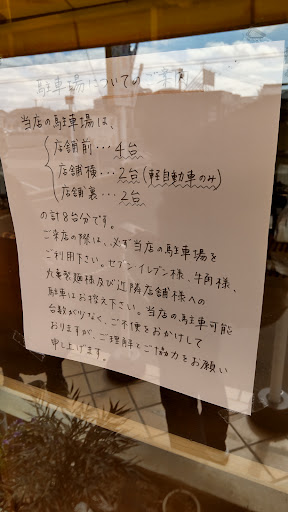 駐車場についてのご案内
当店の駐車場は、
店舗前・・・4台
店舗横・・・2台(軽自動車のみ)
店舗裏・・・2台
の計8台分です。
ご来店の際は、必ず当店の駐車場を
ご利用下さい。セブンイレブン様、牛角様、
丸亀製麺様及び近隣店舗様への
駐車はお控え下さい。当店の駐車可能
台数が少なく、ご不便をおかけして
おりますが、ご理解とご協力をお願い
申し上げます。